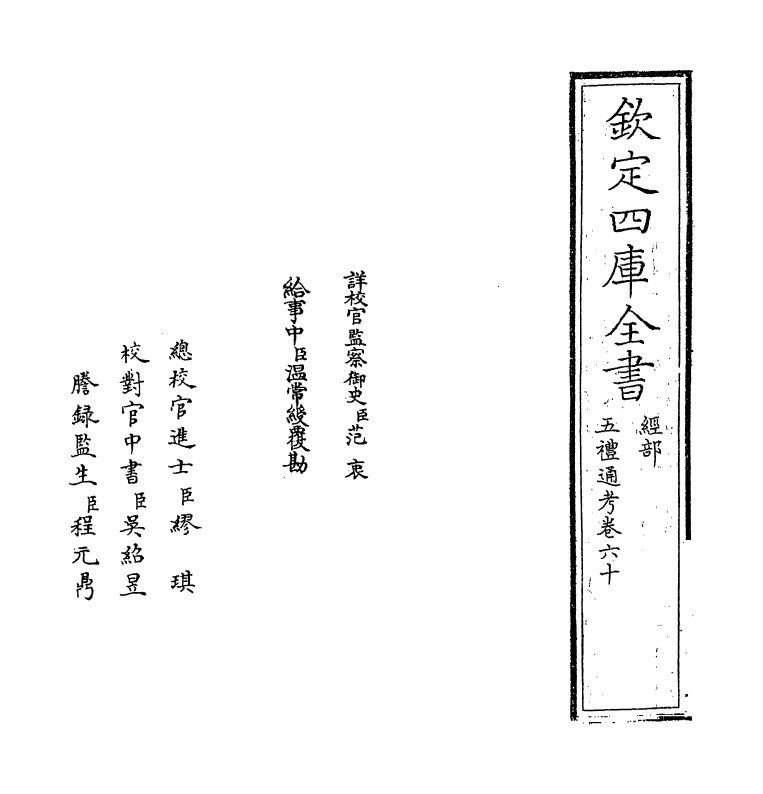 欽定四庫全書
經部
五禮通考卷六十
詳校官監察御史臣范衷
給事中臣溫常綬覆勘
總校官進士臣繆琪
校對官中書臣吳紹昱
謄錄監生臣程元鼎